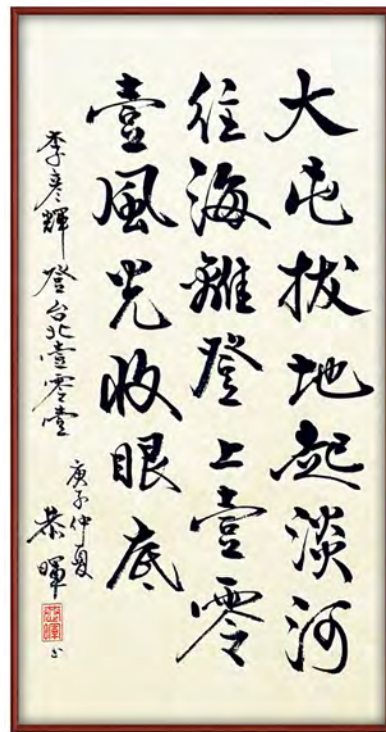 大屯拔地起淡河
往海離登上壹零
壹風光收眼底
李彥輝 登台北壹零壹
庚子仲夏
恭暉